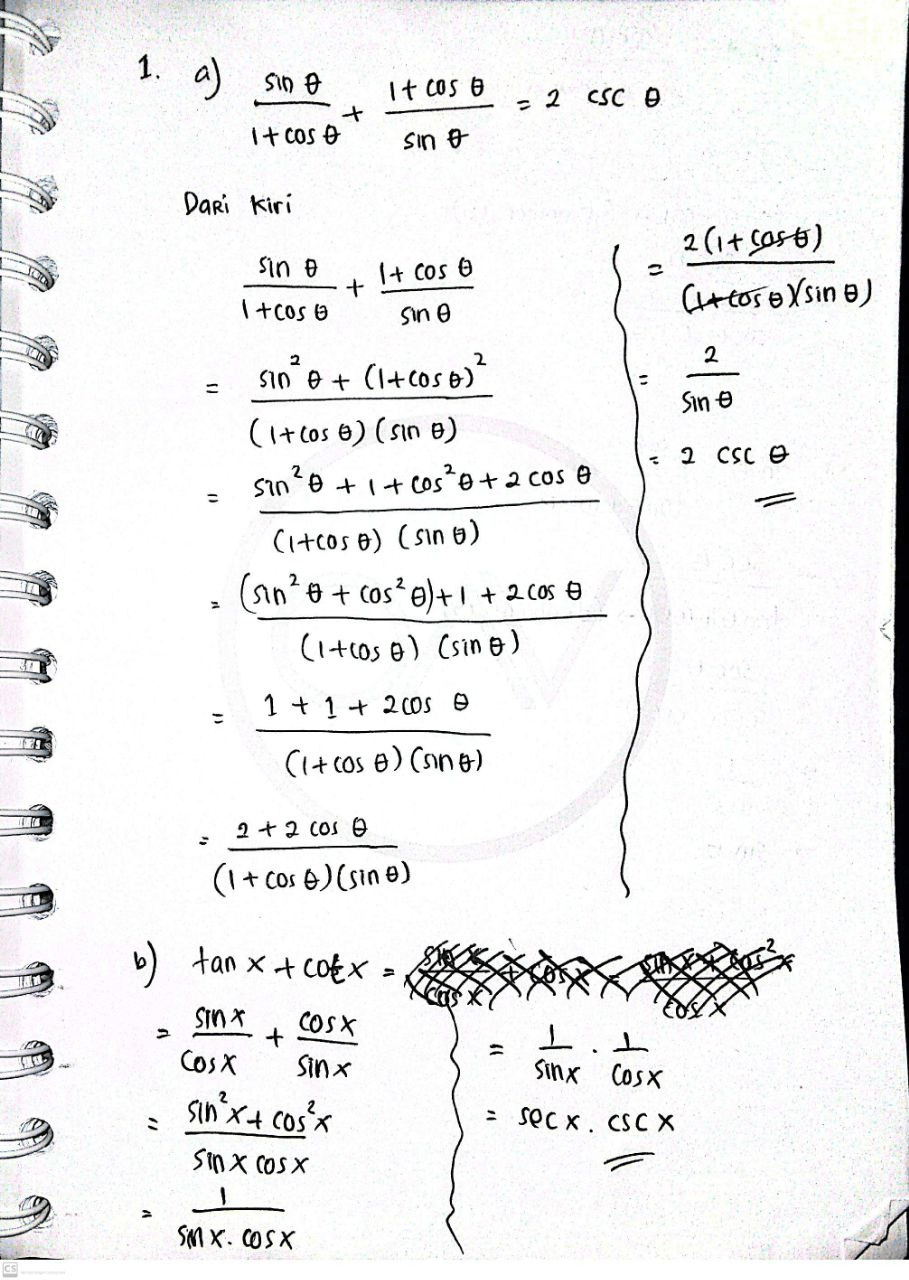 1. a) sin θ / 1+cos θ + 1+cos θ / sin θ = 2 csc θ
Dari kiri
sin θ / 1+cos θ + 1+cos θ / sin θ
= sin²θ + (1+cos θ)² / (1+cos θ) (sin θ)
= sin²θ + 1 + cos²θ + 2 cos θ / (1+cos θ) (sin θ)
= (sin²θ + cos²θ) + 1 + 2 cos θ / (1+cos θ) (sin θ)
= 1 + 1 + 2 cos θ / (1+cos θ) (sin θ)
= 2 + 2 cos θ / (1+cos θ)(sin θ)
= 2(1+cos θ) / (1+cos θ)(sin θ)
= 2 / sin θ
= 2 csc θ
b) tan x + cot x =
= sin x / cos x + cos x / sin x
= sin²x + cos²x / sin x cos x
= 1 / sin x . cos x
= 1 / sin x . 1 / cos x
= sec x . csc x
CS